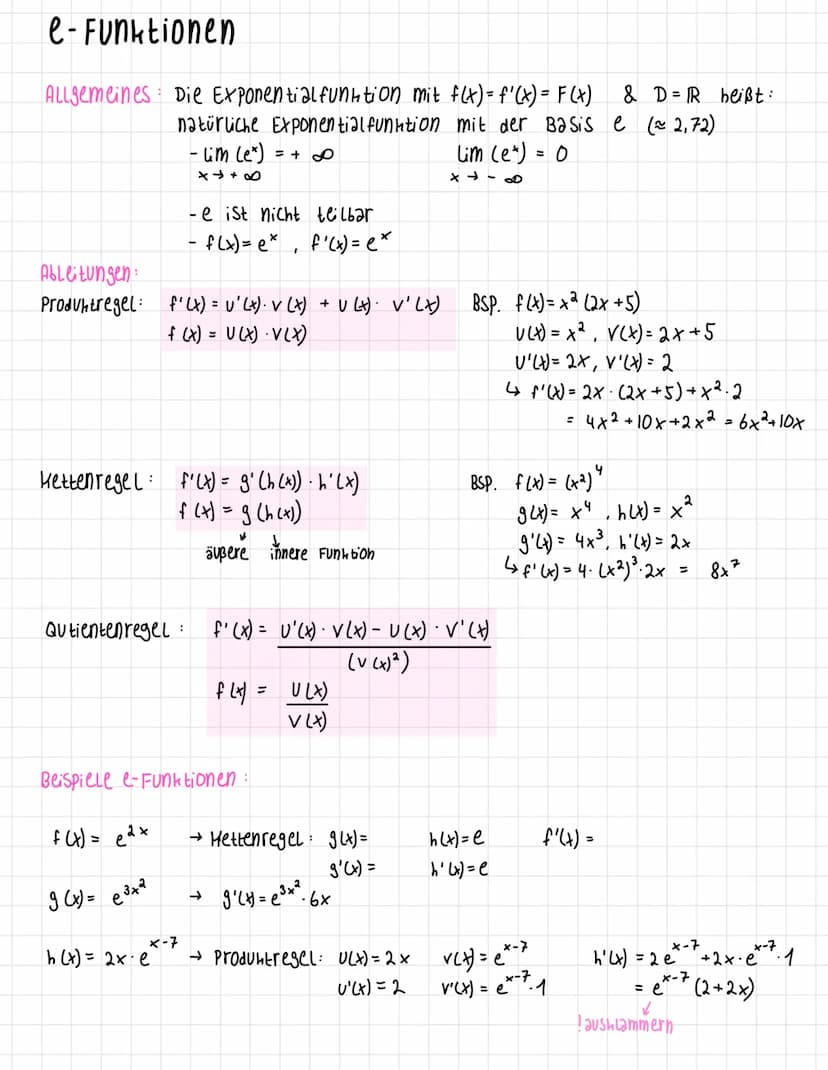 e-Funktionen
Allgemeines: Die Exponentialfunktion mit f(x)= f'(x)= F(x) & D=ℝ heißt:
natürliche Exponentialfunktion mit der Basis e (≈ 2,72)
- lim (eˣ) = + ∞ lim (eˣ) = 0
x → + ∞ x → - ∞
- e ist nicht teilbar
- f(x)= eˣ , f'(x)= eˣ
Ableitungen:
Produktregel: f'(x) = u'(x)· v(x) + u(x)· v'(x) BSP. f(x)= x² (2x+5)
f(x) = u(x) ·v(x) u(x)= x² , v(x)= 2x+5
u'(x)= 2x, v'(x)= 2
↳ f'(x)= 2x · (2x+5)+x²·2
= 4x²+10x+2x² = 6x²+10x
Kettenregel: f'(x) = g'(h(x)) · h'(x) BSP. f(x)= (x²)⁴
f(x) = g(h(x)) g(x)= x⁴ , h(x)= x²
äußere innere Funktion g'(x)= 4x³, h'(x)= 2x
↳ f'(x)= 4·(x²)³·2x = 8x⁷
Qutientenregel: f'(x) = u'(x) · v(x) - u(x) · v'(x)
(v(x)²)
f(x) = u(x)
v(x)
Beispiele e-Funktionen:
f(x) = e²ˣ → Kettenregel: g(x)= h(x)=e f'(x) =
g'(x) = h'(x)=e
g(x)= e^3x² → g'(x)= e^3x² · 6x
h(x)= 2x·e^x-7 → Produktregel: u(x)= 2x v(x)= e^x-7 h'(x) = 2e^x-7+2x·e^x-7·1
u'(x)= 2 v'(x) = e^x-7·1 = e^x-7 (2+2x)
!ausklammern